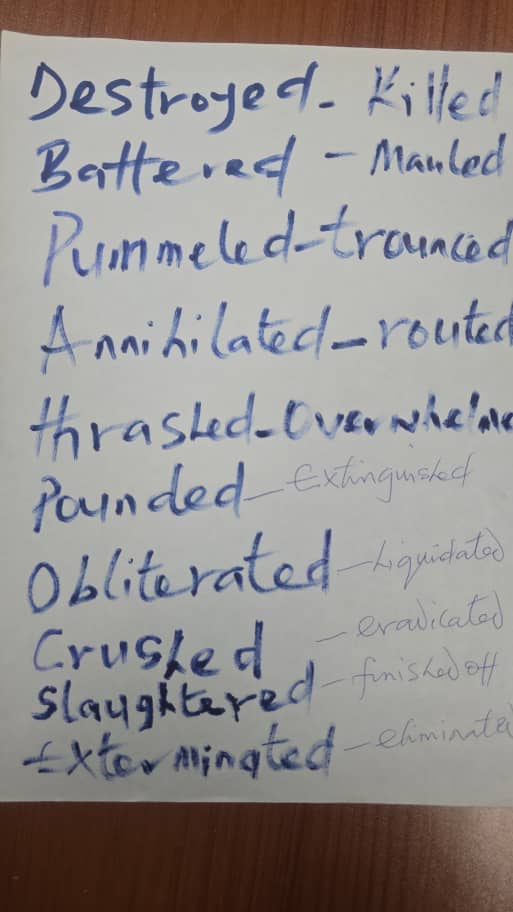 Destroyed - Killed
Battered - Mauled
Pummeled - trounced
Annihilated - routed
thrashed - Overwhelme
Pounded - Extinguished
Obliterated - Liquidated
Crushed - eradicated
Slaughtered - finished off
Exterminated - eliminated